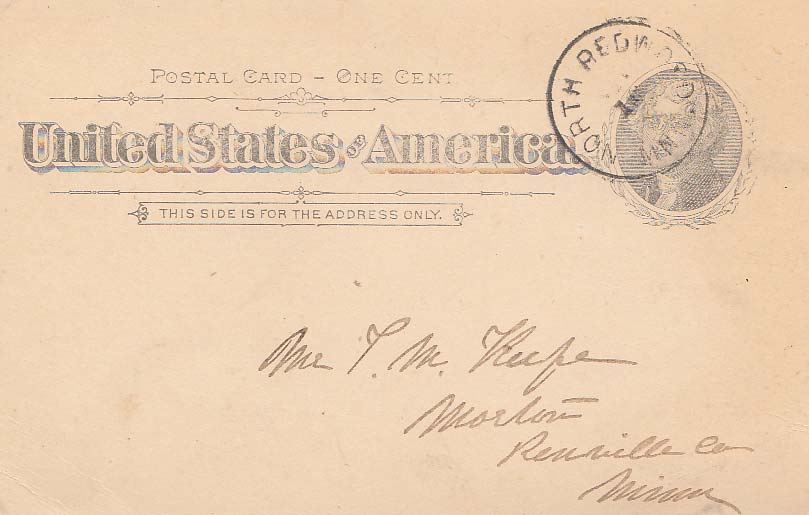 POSTAL CARD – ONE CENT
United States of America
THIS SIDE IS FOR THE ADDRESS ONLY.
NORTH REDWOOD
MINN
Mr T. M. Keefe
Morton
Renville Co
Minn